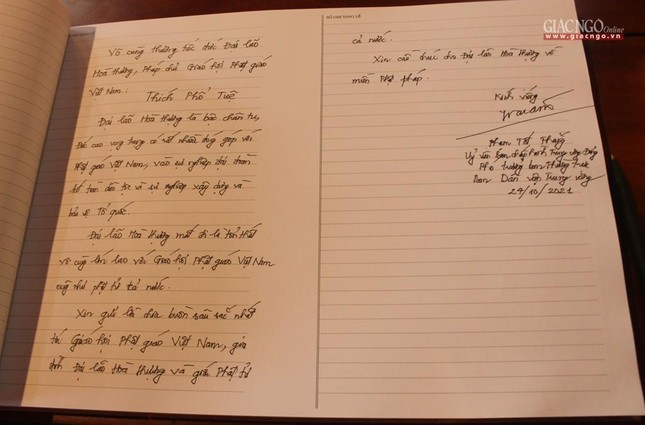 Vô cùng thương tiếc đức Đại lão
Hoà thượng, Pháp chủ Giáo hội Phật giáo
Việt Nam:
Thích Phổ Tuệ
Đại lão Hoà thượng là bậc chân tu,
đức cao vọng trọng có rất nhiều đóng góp với
Phật giáo Việt Nam, vào sự nghiệp đại đoàn
kết toàn dân tộc vì sự nghiệp xây dựng và
bảo vệ Tổ quốc.
Đại lão Hoà thượng mất đi là tổn thất
vô cùng lớn lao với Giáo hội Phật giáo Việt Nam
cũng như phật tử cả nước.
Xin gửi lời chia buồn sâu sắc nhất
tới Giáo hội Phật giáo Việt Nam, gia
đình Đại lão Hoà thượng và giới Phật tử
SỔ GHI TANG LỄ
cả nước.
Xin cầu chúc cho Đại lão Hoà thượng về
miền Phật pháp.
Kính viếng
Phạm Tất Thắng
Uỷ viên Ban chấp hành Trung ương Đảng
Phó trưởng ban Thường trực
Ban Dân vận Trung ương
24/10/2021
GIACNGO Online
www.giacngo.vn